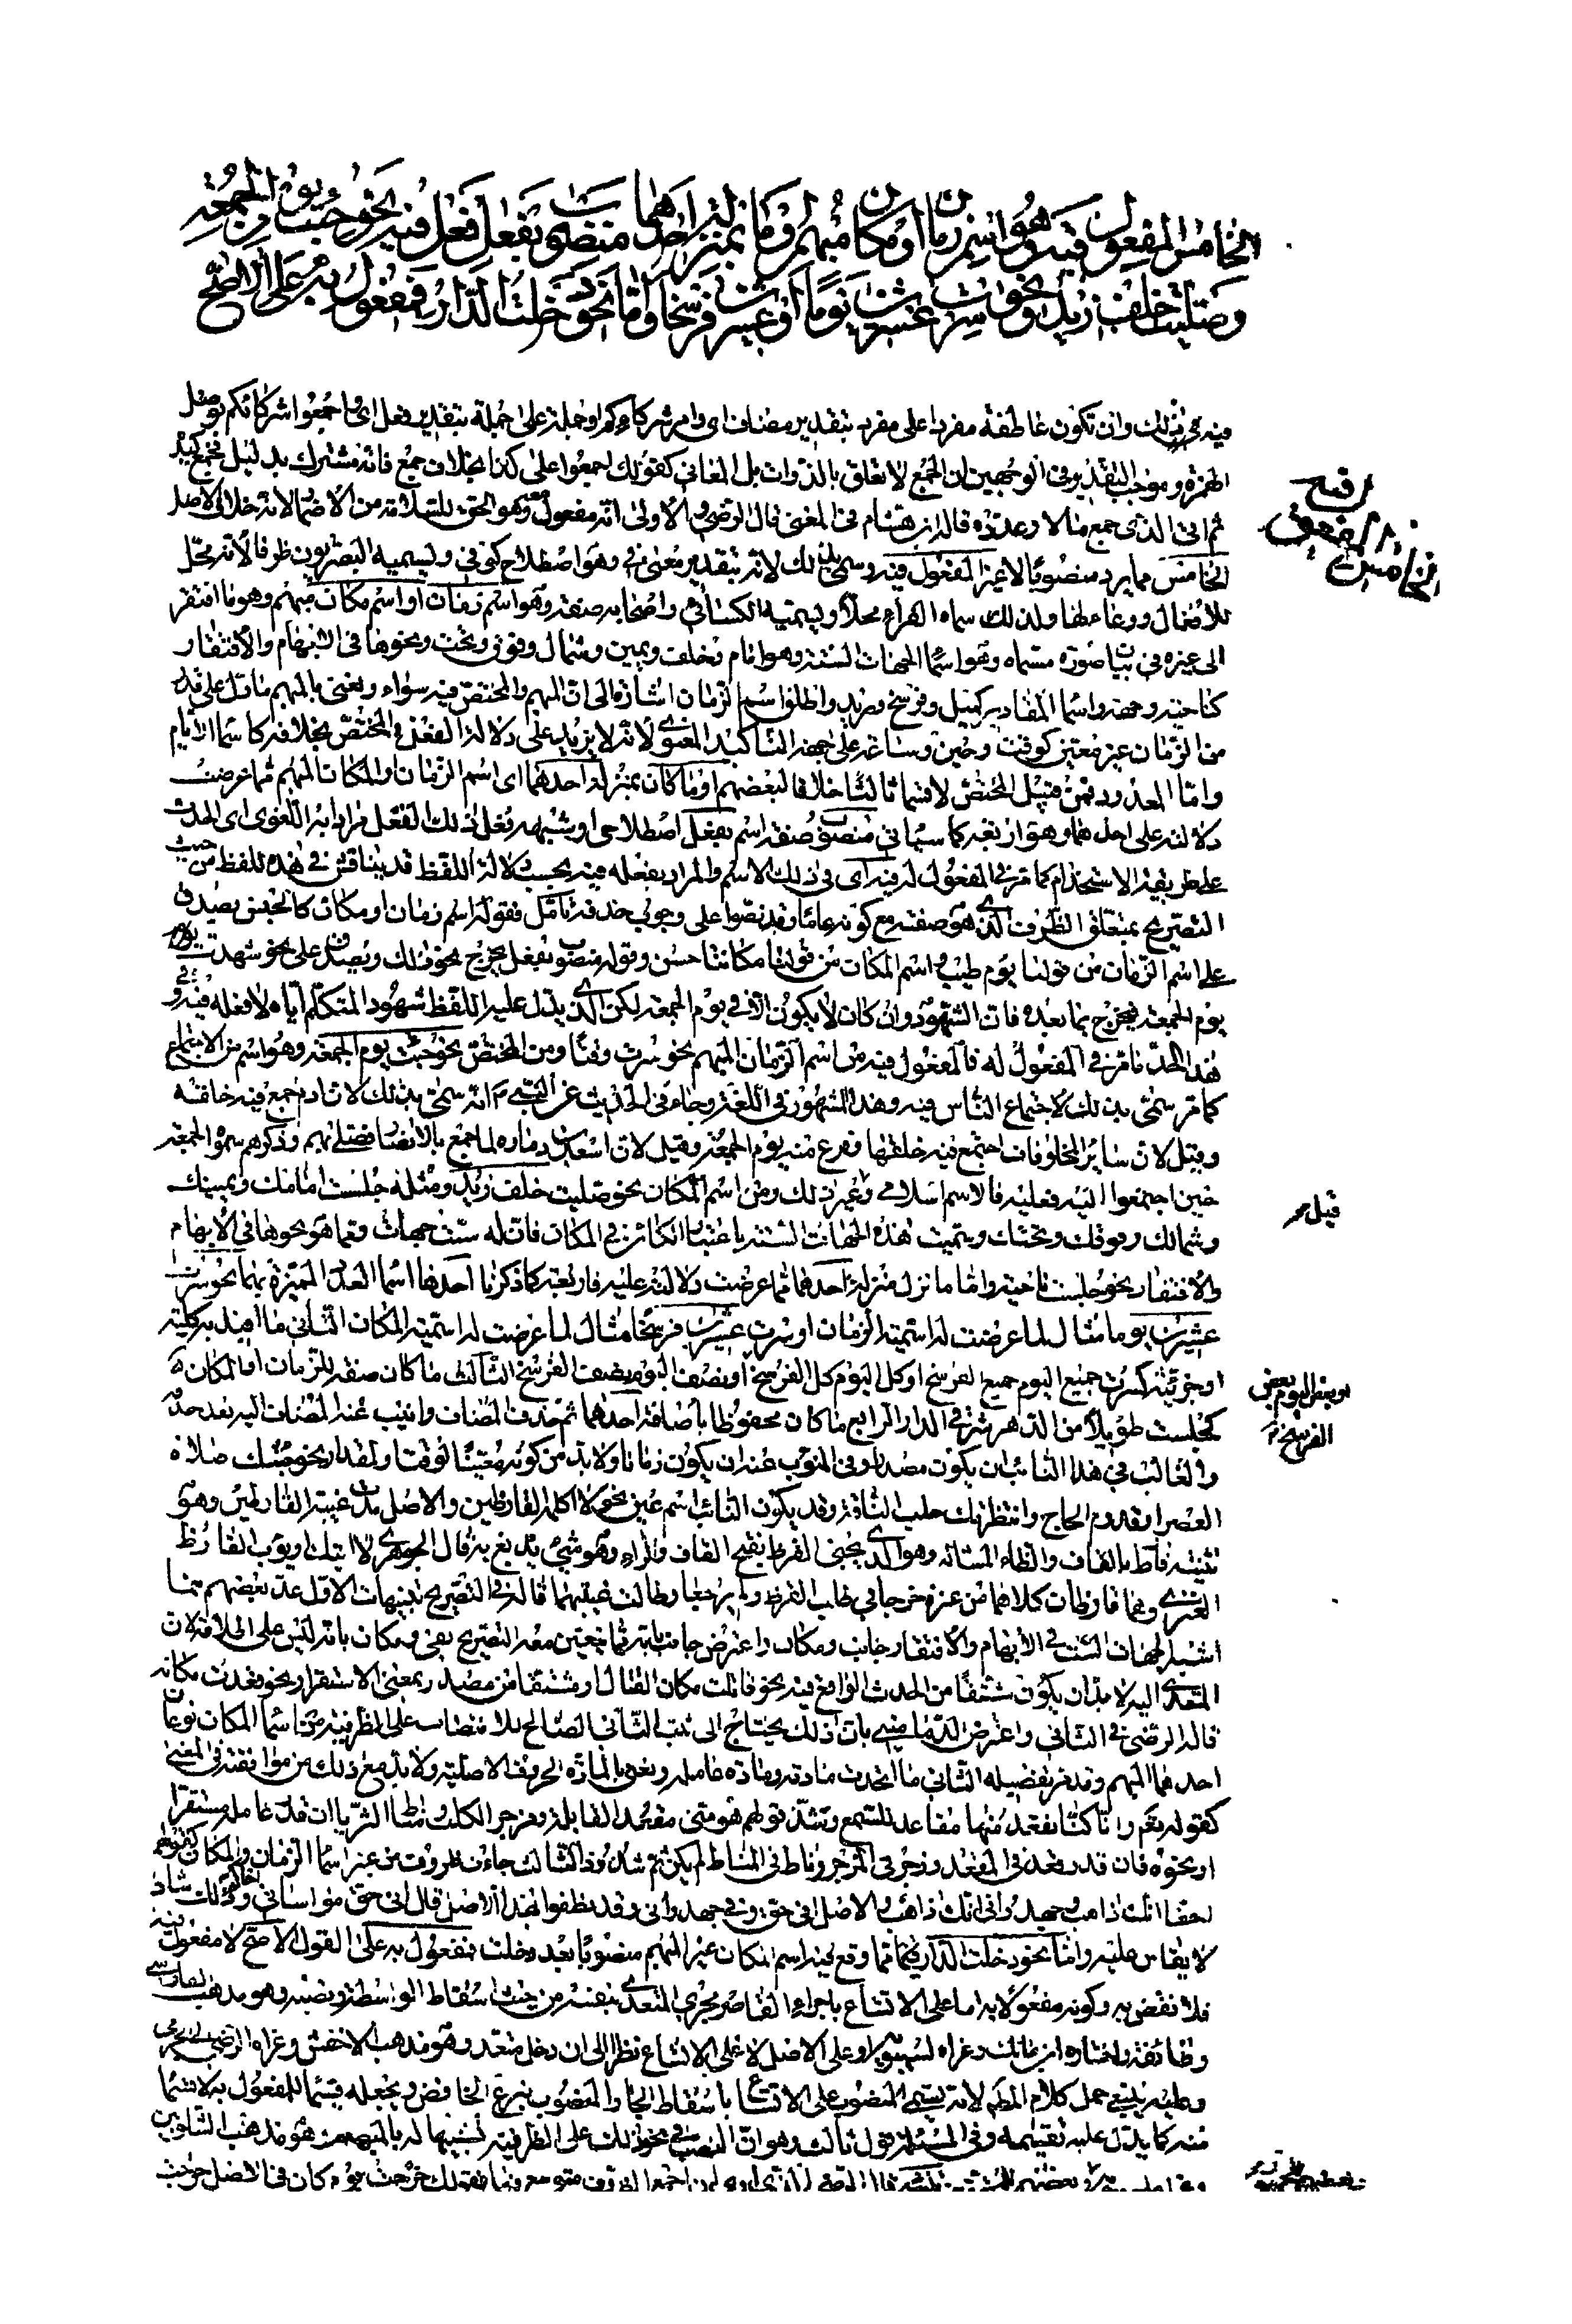 الخامس المفعول فيه وهو اسم زمان او مكان مبهم وما بمنزلة احدهما منصوب بفعل فعل فيه نحو جئت يوم الجمعة
وصليت خلف زيد او نحو سرت عشرين يوما او عشرين فرسخا واما نحو دخلت الدار فمفعول به على الاصح
فيه غير ذلك وان تكون عاطفة مفردا على مفرد بتقدير مضاف اى وامر شركاءكم او جملة على جملة بتقدير فعل اى واجمعوا شركائكم بوصل
الهمزة وموجب التقدير فى الوجهين ان اجمع لا تعلق بالذوات بل المعانى كقولك اجمعوا على كذا بخلاف جمع فانه مشترك بدليل فجمع كيده
ثم اتى الذى جمع مالا وعدده قاله ابن هشام فى المغنى قال الرضى والاولى انه مفعول معه وهو الحق للسلامة من الاضمار لانه خلاف الاصل
الخامس مما يرد منصوبا لا غير المفعول فيه وسمى بذلك لانه بتقدير معنى فى وهو اصطلاح كوفى ويسميه البصريون ظرفا لانه محل
للافعال ووعاء لها ولذلك سماه الفراء محلا ويسميه الكسائى واصحابه صفة وهو اسم زمان او اسم مكان مبهم وهو ما افتقر
الى غيره فى بيان صورة مسماه وهو اسما الجهات الستة وهو امام وخلف ويمين وشمال وفوق وتحت ونحوها فى الابهام والافتقار
كناحية وجهة واسما المقادير كميل وفرسخ وبريد واطلق اسم الزمان اشارة الى ان المبهم والمختص فيه سواء ونعنى بالمبهم ما دل على قدر
من الزمان غير معين كوقت وحين وساعة على جهة التأكيد المعنوى لانه لا يزيد على دلالة الفعل والمختص بخلافه كاسما الايام
واما المعدود فمن قبيل المختص لا قسما ثالثا خلافا لبعضهم او ما كان بمنزلة احدهما اى اسم الزمان او المكان المبهم مما عرضت
دلالته على احدهما وهو اربعة كما سيأتى منصوب صفة اسم بفعل اصطلاحى او شبهه فعل ذلك الفعل مرادا به اللغوى اى الحدث
على طريقة الاستخدام كما مر فى المفعول له فيه اى فى ذلك الاسم والمراد بفعله فيه بحسب دلالة اللفظ قد يناقش فى هذه اللفظ من حيث
التصريح بمتعلق الظرف الذى هو صفة مع كونه عاما وقد نصوا على وجوب حذفه تأمل فقوله اسم زمان او مكان كالجنس يصدق
على اسم الزمان من قولنا يوم طيب واسم المكان من قولنا مكاننا حسن وقوله منصوب بفعل يخرج نحو ذلك ويصدق على نحو شهدت يوم
يوم الجمعة فيخرج بما بعده فان الشهود وان كان لا يكون الا فى يوم الجمعة لكن الذى يدل عليه اللفظ شهود المتكلم اياه لا فعله فيه وفى
هذا الحد ما مر فى المفعول له فالمفعول فيه من اسم الزمان المبهم نحو سرت وقتا ومن المختص نحو جئت يوم الجمعة وهو اسم من الاجتماع
كما مر سمى بذلك لاجتماع الناس فيه وهذا المشهور فى اللغة وجاء فى الحديث عن النبى م انه سمى بذلك لان ادم جمع فيه خلقه
وقيل لان سائر المخلوقات اجتمع فيه خلقها وفرغ منه يوم الجمعة وقيل لان اسعد بن زرارة لما جمع بالانصار فصلى بهم وذكرهم سموه الجمعة
حين اجتمعوا اليه فعليه فالاسم اسلامى وغير ذلك ومن اسم المكان نحو صليت خلف زيد ومثله جلست امامك ويمينك
وشمالك وفوقك وتحتك وسميت هذه الجهات الستة باعتبار الكائن فى المكان فان له ست جهات وما هو نحوها فى الابهام
والافتقار نحو جلست ناحية واما ما نزل منزلة احدهما مما عرضت دلالته عليه فاربعة كما ذكرنا احدها اسما العدد المميزة بهما نحو سرت
عشرين يوما مثال لما عرضت له اسمية الزمان او سرت عشرين فرسخا مثال لما عرضت له اسمية المكان الثانى ما افيد به كلية
او جزئية كسرت جميع اليوم جميع الفرسخ او كل اليوم كل الفرسخ او نصف اليوم نصف الفرسخ الثالث ما كان صفة للزمان او المكان
كجلست طويلا من الدهر شرقى الدار الرابع ما كان مخفوظا باضافة احدهما ثم حذف المضاف وانيب عنه المضاف اليه بعد حذفه
والغالب فى هذا النائب ان يكون مصدرا وفى المنوب عنه ان يكون زمانا ولا بد من كونه معينا لوقت او لمقدار نحو جئتك صلاة
العصر او قدوم الحاج وانتظرتك حلب الناقة وقد يكون النائب اسم عين نحو لا اكلمه القارظين والاصل مدة غيبة القارظين وهو
تثنية قارظ بالقاف والظاء المشالة وهو الذى يجتنى القرظ بفتح القاف والراء وهو شىء يدبغ به قال الجوهرى لا اتيك او يؤب القارظ
العنزى وهما قارظان كلاهما من عنزة خرجا فى طلب القرظ ولم يرجعا وطالت غيبتهما قاله فى التصريح تنبيهات الاول عد بعضهم مما
اشبه الجهات الست فى الابهام والافتقار جانب ومكان واعترض جانب بانه مما يتعين معه التصريح بفى ومكان بانه ليس على اطلاقه لان
المتعدى اليه لا بد ان يكون مشتقا من الحدث الواقع فيه نحو قاتلت مكان القتال او مشتقا من مصدر بمعنى الاستقرار نحو قعدت مكانه
قاله الرضى فى الثانى واعترض الدمامينى بان ذلك يحتاج الى ثبت الثانى الصالح للانتصاب على الظرفية من اسما المكان نوعان
احدهما المبهم وقد مر تفصيله الثانى ما اتحدت مادته ومادة عامله ونعنى بالمادة الحروف الاصلية ولا بد مع ذلك من موافقته فى المعنى
كقوله تعم وانا كنا نقعد منها مقاعد للسمع وشذ قولهم هو منى مقعد القابلة ومزجر الكلب ومناط الثريا ان قدر عامله مستقرا
او نحوه فان قدر قعد فى المقعد وزجر فى المزجر وناط فى المناط لم يكن ثم شذوذ الثالث جاءت ظروف من غير اسما الزمان والمكان كقولهم
احقا انك ذاهب وجهد رأى انك ذاهب والاصل افى حق وفى جهد رأى وقد نطقوا بهذا الاصل قال افى حق مواساتى اخاكم وذلك شاذ
لا يقاس عليه واما نحو دخلت الدار مما وقع فيه اسم المكان غير المبهم منصوبا بعد دخلت فمفعول به على القول الاصح لا مفعول فيه
فلا نقض به وكونه مفعولا به اما على الاتساع باجراء القاصر مجرى المتعدى بنفسه من حيث اسقاط الواسطة ونصبه وهو مذهب الفارسى
وطائفة واختاره ابن مالك وعزاه لسيبويه او على الاصل لا على الاتساع نظرا الى ان دخل متعد وهو مذهب الاخفش وعزاه الرضى للجرمى
وعليه ينبغى حمل كلام المص لانه يسمى المنصوب على الاتساع باسقاط الجار المنصوب بنزع الخافض ويجعله قسيما للمفعول به لا قسما
منه كما يدل عليه تقسيمه وفى المسئلة قول ثالث وهو ان النصب فى نحو ذلك على الظرفية تشبيها له بالمبهم وهو مذهب الشلوبين
الخامس
المفعول
فيه
قيل
او بعض اليوم بعض
الفرسخ